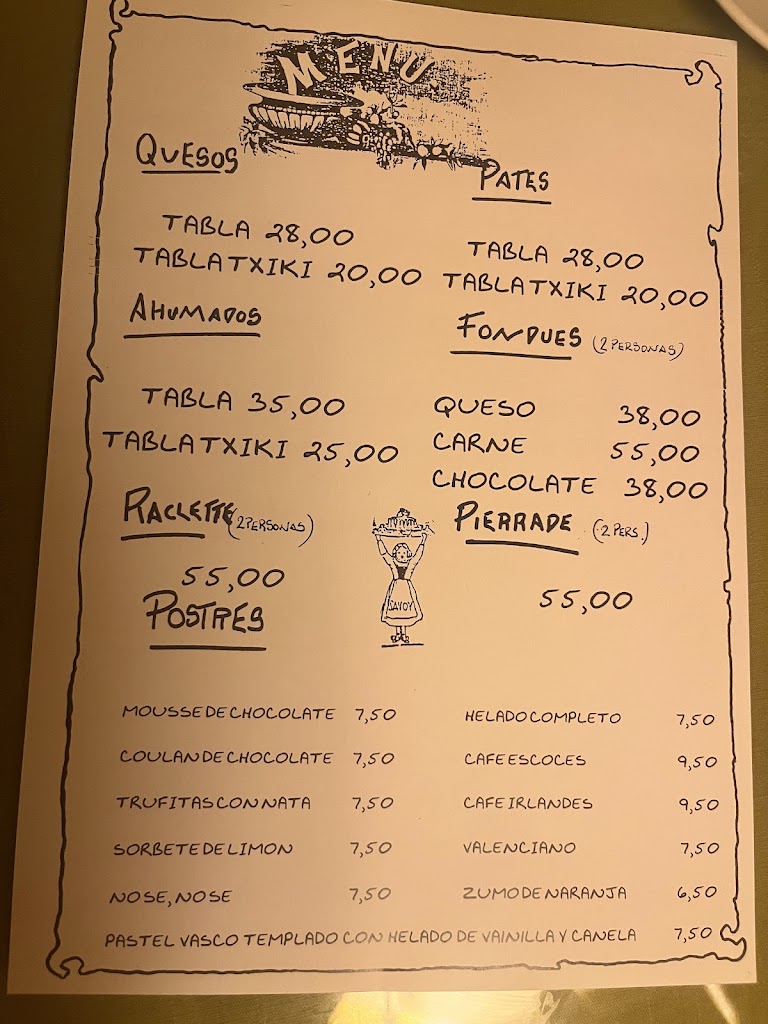 MENU
QUESOS
TABLA 28,00
TABLA TXIKI 20,00
PATES
TABLA 28,00
TABLA TXIKI 20,00
AHUMADOS
TABLA 35,00
TABLA TXIKI 25,00
FONDUES (2 PERSONAS)
QUESO 38,00
CARNE 55,00
CHOCOLATE 38,00
RACLETTE (2 PERSONAS)
55,00
PIERRADE (2 PERS.)
55,00
SAVOY
POSTRES
MOUSSE DE CHOCOLATE 7,50
COULAN DE CHOCOLATE 7,50
TRUFITAS CON NATA 7,50
SORBETE DE LIMON 7,50
NO SE, NO SE 7,50
HELADO COMPLETO 7,50
CAFE ESCOCES 9,50
CAFE IRLANDES 9,50
VALENCIANO 7,50
ZUMO DE NARANJA 6,50
PASTEL VASCO TEMPLADO CON HELADO DE VAINILLA Y CANELA 7,50